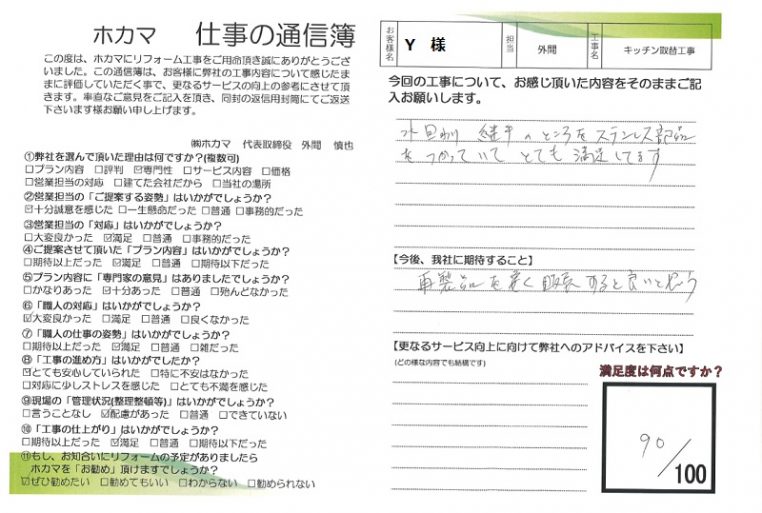 ホカマ 仕事の通信簿
この度は、ホカマにリフォーム工事をご用命頂き誠にありがとうござ
いました。この通信簿は、お客様に弊社の工事内容について感じたま
まに評価していただく事で、更なるサービスの向上の参考にさせて頂
きます。率直なご意見をご記入を頂き、同封の返信用封筒にてご返送
下さいます様お願い申し上げます。
㈱ホカマ 代表取締役 外間 慎也
①弊社を選んで頂いた理由は何ですか?(複数可)
□プラン内容 □評判 ☑専門性 □サービス内容 □価格
□営業担当の対応 □建てた会社だから □当社の場所
②営業担当の「ご提案する姿勢」はいかがでしょうか?
☑十分誠意を感じた □一生懸命だった □普通 □事務的だった
③営業担当の「対応」はいかがでしょうか?
□大変良かった ☑満足 □普通 □事務的だった
④ご提案させて頂いた「プラン内容」はいかがでしょうか?
□期待以上だった ☑満足 □普通 □期待以下だった
⑤プラン内容に「専門家の意見」はありましたでしょうか?
□かなりあった ☑十分あった □普通 □殆んどなかった
⑥「職人の対応」はいかがでしょうか?
☑大変良かった □満足 □普通 □良くなかった
⑦「職人の仕事の姿勢」はいかがでしょうか?
□期待以上だった ☑満足 □普通 □雑だった
⑧「工事の進め方」はいかがでしたか?
☑とても安心していられた □特に不安はなかった
□対応に少しストレスを感じた □とても不満を感じた
⑨現場の「管理状況(整理整頓等)」はいかがでしょうか?
□言うことなし ☑配慮があった □普通 □できていない
⑩「工事の仕上がり」はいかがでしょうか?
□期待以上だった ☑満足 □普通 □期待以下だった
⑪もし、お知合いにリフォームの予定がありましたら
ホカマを「お勧め」頂けますでしょうか?
☑ぜひ勧めたい □勧めてもいい □わからない □勧められない
お客様名 Y 様 担当 外間 工事名 キッチン取替工事
今回の工事について、お感じ頂いた内容をそのままご記
入お願いします。
継手のところをステンレス部品
をつかっていて とても満足してます
【今後、我社に期待すること】
製品を 販売すると良いと思う
【更なるサービス向上に向けて弊社へのアドバイスを下さい】
(どの様な内容でも結構です)
満足度は何点ですか?
90/100